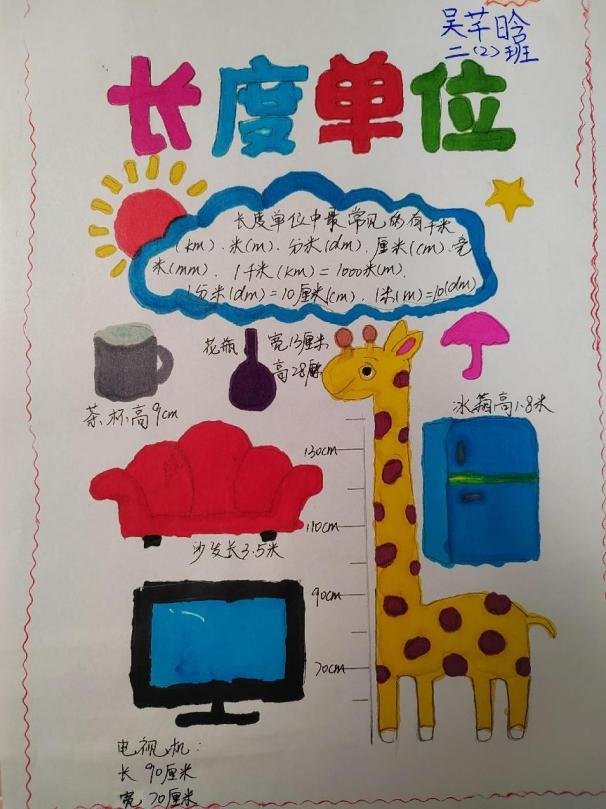 吴芊晗
二(2)班
长度单位
长度单位中最常见的有千米
(km)、米(m)、分米(dm)、厘米(cm)、毫
米(mm)、1千米(km)=1000米(m)、
1分米(dm)=10厘米(cm)、1米(m)=10(dm)
花瓶 宽13厘米
高28厘米
茶杯高9cm
冰箱高1.8米
130cm
110cm
沙发长3.5米
90cm
70cm
电视机:
长 90厘米
宽 70厘米